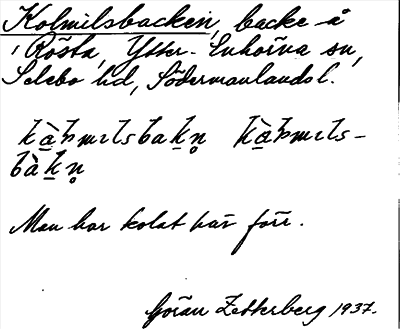 Kolmilsbacken, backe å
Rösta, Ytter-Enhörna sn,
Selebo hd, Södermanlands l.
Man har kolat här förr.
Göran Zetterberg 1937.